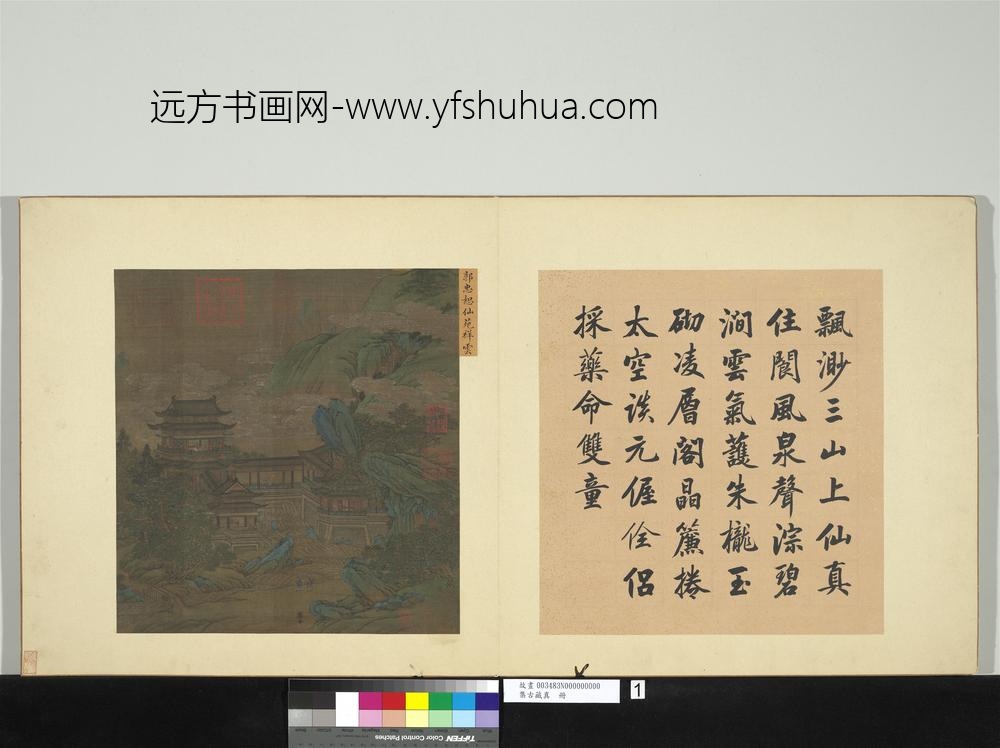 远方书画网-www.yfshuhua.com
郭忠恕仙苑祥雲
飄渺三山上仙真
住閬風泉聲淙碧
澗雲氣護朱櫳玉
砌凌層閣晶簾捲
太空談元偓佺侶
採藥命雙童
故畫 003483N000000000
集古藏真 冊
1
TIFFEN Color Control Patches